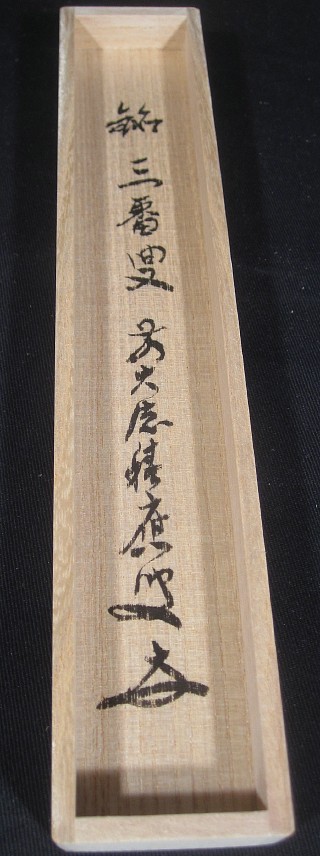 銘 三番叟 前大徳積應